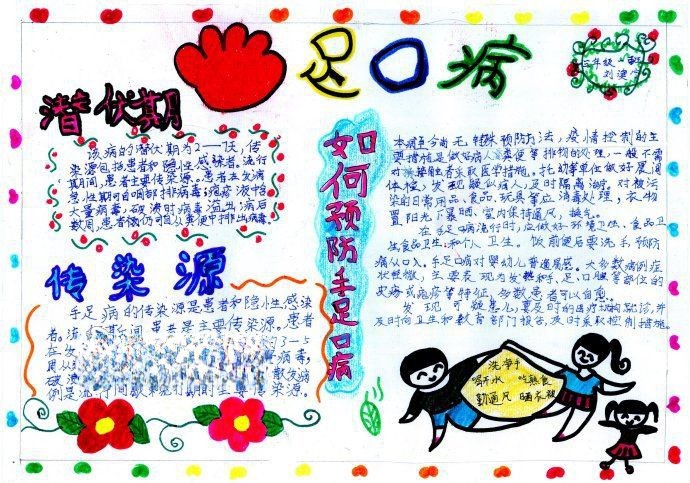 足口病
三年级一班
潜伏期
该病的潜伏期为2—7天，传
染源包括患者和隐性感染者。流行
期间，患者主要传染源。患者在发病
急性期可自咽部排病毒；疱疹液中含
大量病毒，破溃时病毒溢出；病后
数周，患者仍可自从粪便中排出病毒。
传染源
手足口病的传染源是患者和隐性感染
者。流行期间，患者是主要传染源。患者
在发
3—5
周从
病毒，
破溃
散发病
例是流行间歇和流行期的主要传染源。
如何预防手足口病
本病至今尚无特殊预防方法，疫情控制的主
要措施是做好病人粪便等排物的处理，一般不需
对接触者采取医学措施。托幼等单位做好晨间
体检，发现疑似病人，及时隔离治疗。对被污
染的日常用品、食品、玩具等应消毒处理，衣物
置阳光下暴晒，室内保持通风，换气。
在手足口病流行时，应做好环境卫生、食品卫
生和个人卫生。饭前便后要洗手，预防
病从口入。手足口病对婴幼儿普通易感。大多数病例症
状轻微，主要表现为发热和手、足、口腔等部位的
皮疹或疱疹等特征，多数患者可以自愈。
发现可疑患儿，要及时到医疗机构就诊，并
及时向卫生和教育部门报告，及时采取控制措施。
洗净手
喝开水 吃熟食
勤通风 晒衣被